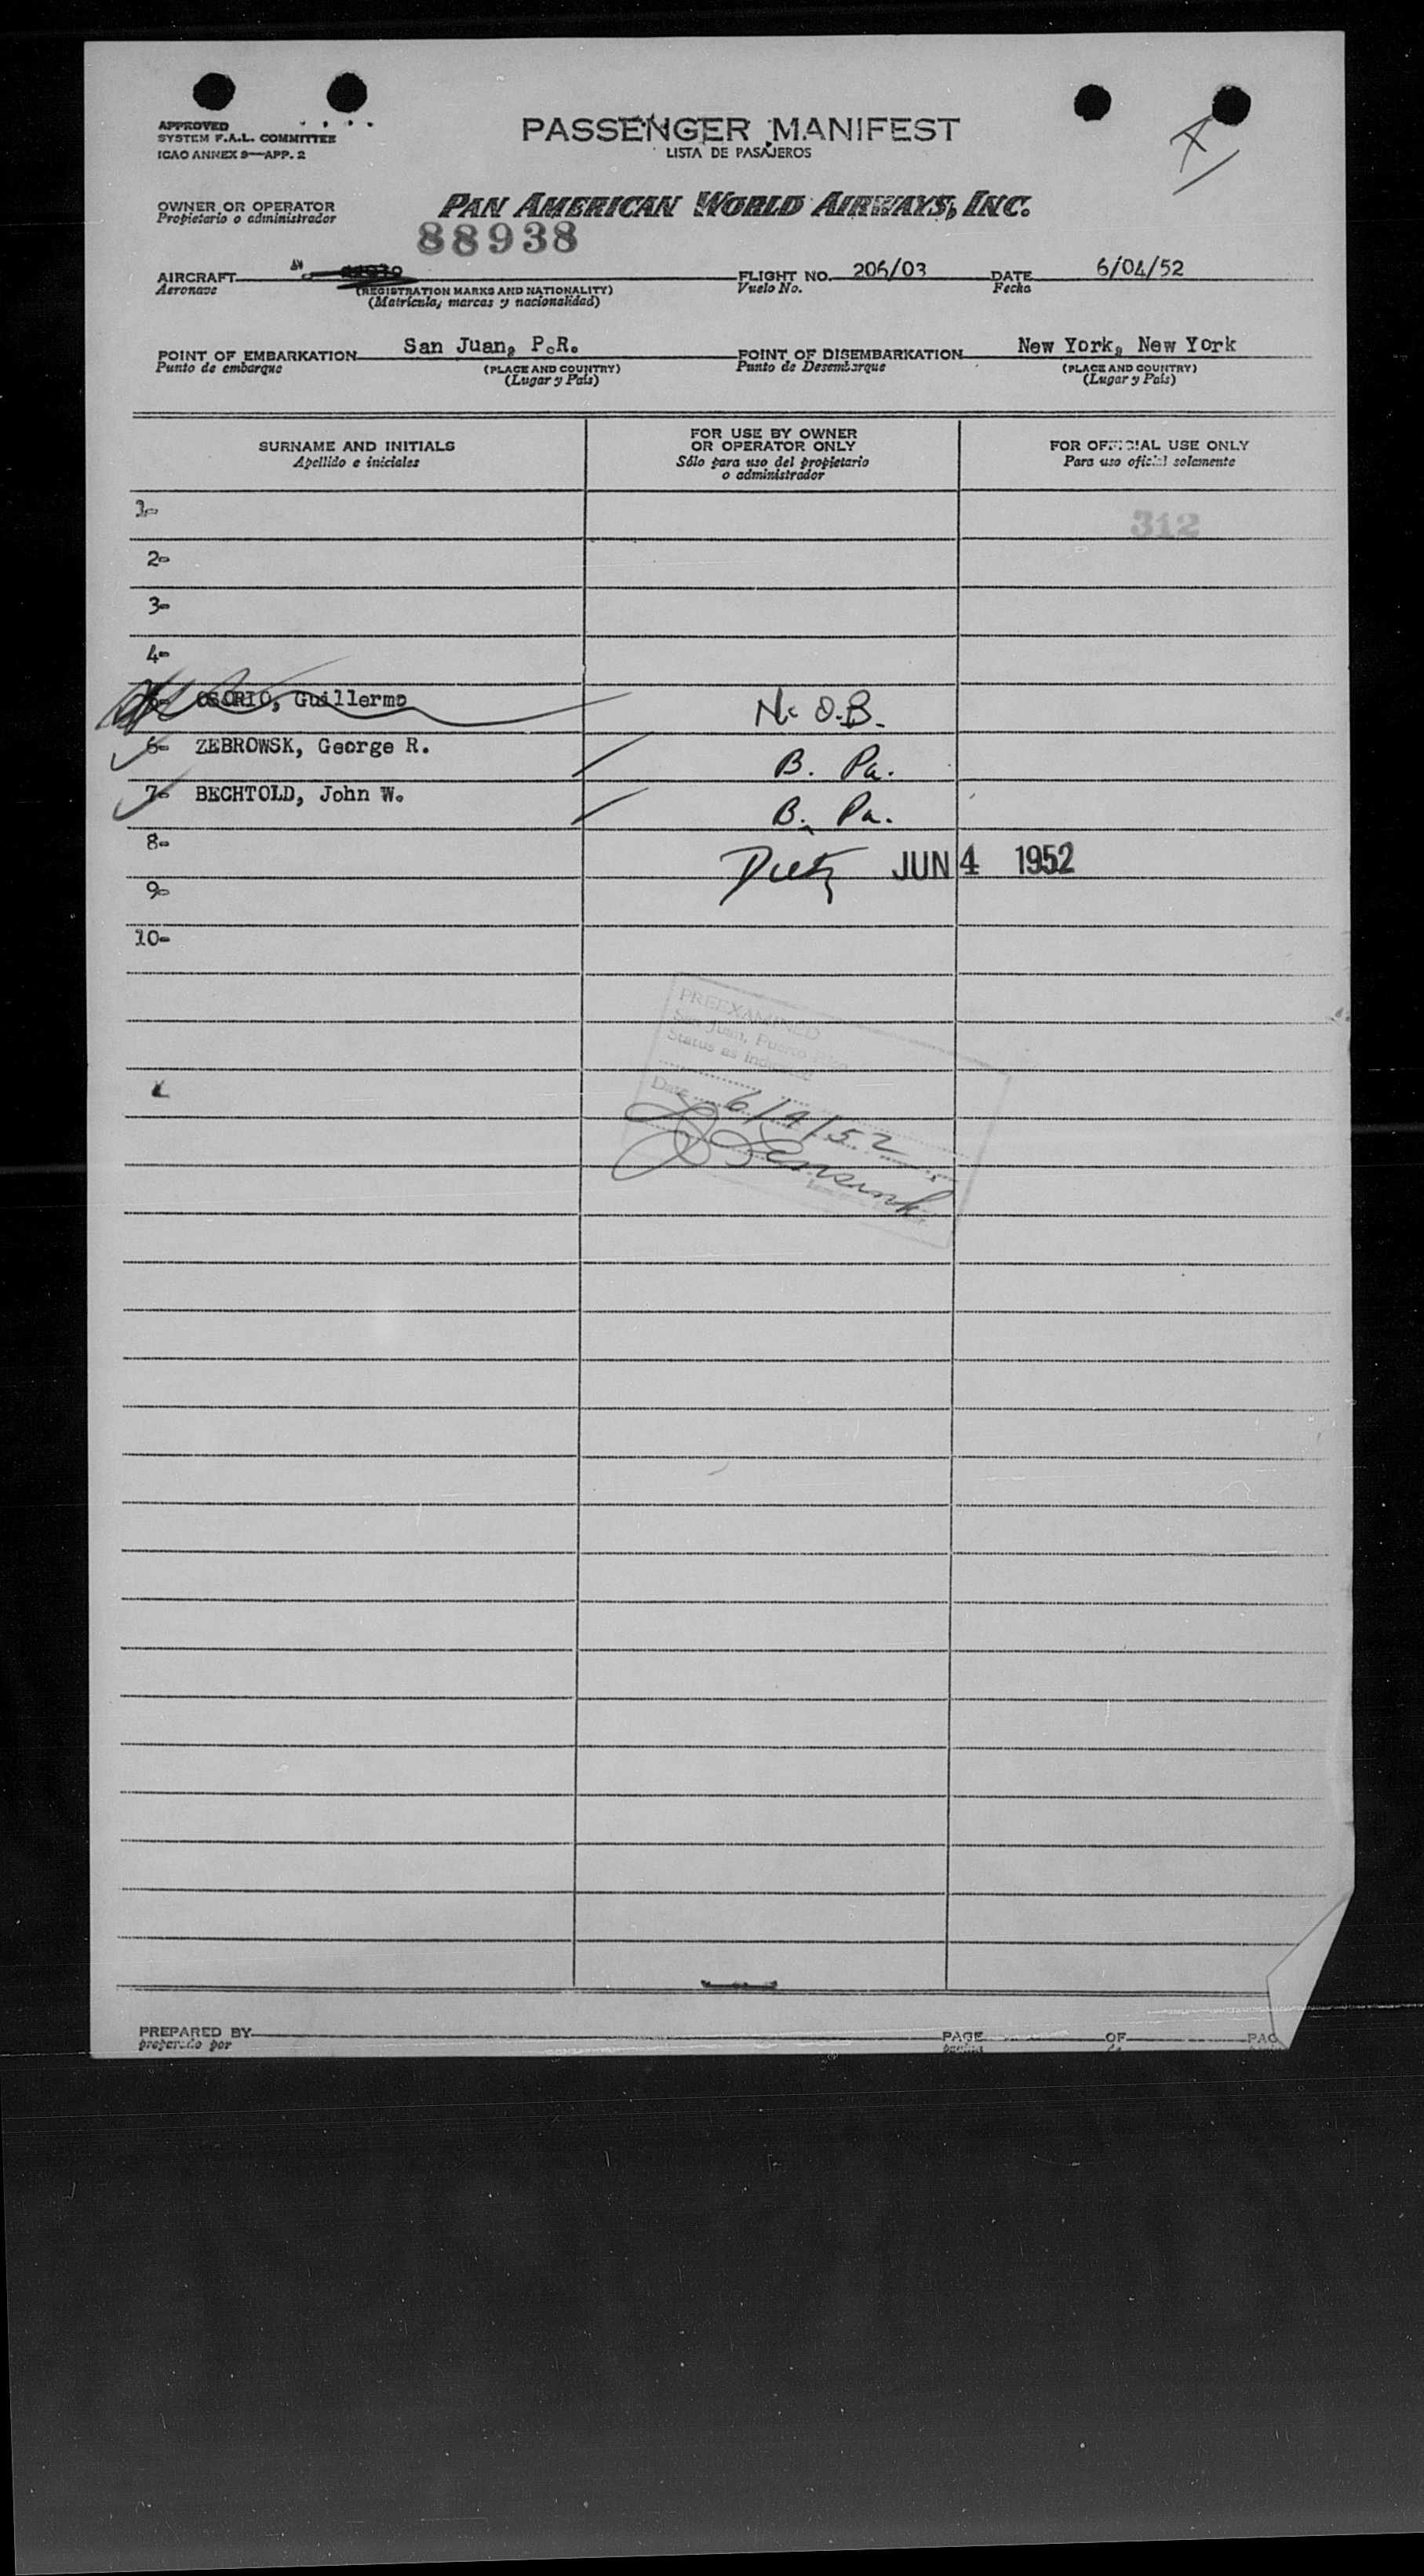 APPROVED
SYSTEM F.A.L. COMMITTEE
ICAO ANNEX 9—APP. 2
PASSENGER MANIFEST
LISTA DE PASAJEROS
OWNER OR OPERATOR
Propietario o administrador
PAN AMERICAN WORLD AIRWAYS, INC.
88938
AIRCRAFT
Aeronave
(REGISTRATION MARKS AND NATIONALITY)
(Matrícula, marcas y nacionalidad)
FLIGHT NO. 206/03
Vuelo No.
DATE 6/04/52
Fecha
POINT OF EMBARKATION San Juan, P.R.
Punto de embarque
(PLACE AND COUNTRY)
(Lugar y País)
POINT OF DISEMBARKATION New York, New York
Punto de Desembarque
(PLACE AND COUNTRY)
(Lugar y País)
SURNAME AND INITIALS
Apellido e iniciales
FOR USE BY OWNER
OR OPERATOR ONLY
Sólo para uso del propietario
o administrador
FOR OFFICIAL USE ONLY
Para uso oficial solamente
1-
312
2-
3-
4-
5- OSORIO, Guillermo N. O.B.
6- ZEBROWSK, George R. B. Pa.
7- BECHTOLD, John W. B. Pa.
8-
JUN 4 1952
9-
10-
PREEXAMINED
San Juan, Puerto Rico
Status as indicated
Date 6/4/52
PREPARED BY
preparado por
PAGE
página
OF
de
PAG